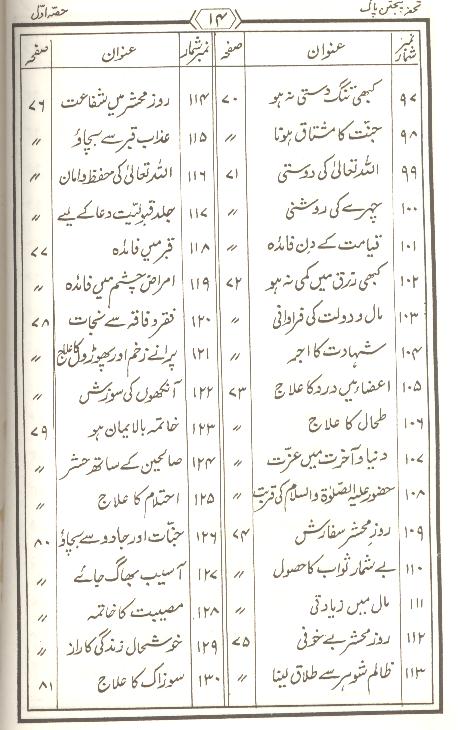 تحفہ پنجتن پاک ۱۴ حصہ اوّل
نمبر شمار عنوان صفحہ نمبر شمار عنوان صفحہ
۹۷ کبھی تنگ دستی نہ ہو ۷۰
۹۸ جنّت کا مشتاق ہونا 〃
۹۹ اللہ تعالیٰ کی دوستی ۷۱
۱۰۰ چہرے کی روشنی 〃
۱۰۱ قیامت کے دن فائدہ 〃
۱۰۲ کبھی رزق میں کمی نہ ہو ۷۲
۱۰۳ مال و دولت کی فراوانی 〃
۱۰۴ شہادت کا اجر 〃
۱۰۵ اعضاء میں درد کا علاج ۷۳
۱۰۶ طحال کا علاج 〃
۱۰۷ دنیا و آخرت میں عزّت 〃
۱۰۸ حضور علیہ الصلوٰۃ والسلام کی قربت 〃
۱۰۹ روزِ محشر سفارش ۷۴
۱۱۰ بے شمار ثواب کا حصول 〃
۱۱۱ مال میں زیادتی 〃
۱۱۲ روز محشر بے خوفی ۷۵
۱۱۳ ظالم شوہر سے طلاق لینا 〃
۱۱۴ روز محشر میں شفاعت ۷۶
۱۱۵ عذاب قبر سے بچاؤ 〃
۱۱۶ اللہ تعالیٰ کی حفظ و امان 〃
۱۱۷ جلد قبولیّت دعا کے لیے 〃
۱۱۸ قبر میں فائدہ ۷۷
۱۱۹ امراض چشم میں فائدہ 〃
۱۲۰ فقر و فاقہ سے نجات ۷۸
۱۲۱ پرانے زخم اور پھوڑوں کا علاج 〃
۱۲۲ آنکھوں کی سوزش 〃
۱۲۳ خاتمہ بالایمان ہو ۷۹
۱۲۴ صالحین کے ساتھ حشر 〃
۱۲۵ احتلام کا علاج 〃
۱۲۶ جنّات اور جادو سے بچاؤ ۸۰
۱۲۷ آسیب بھاگ جائے 〃
۱۲۸ مصیبت کا خاتمہ 〃
۱۲۹ خوشحال زندگی کا راز 〃
۱۳۰ سوزاک کا علاج ۸۱